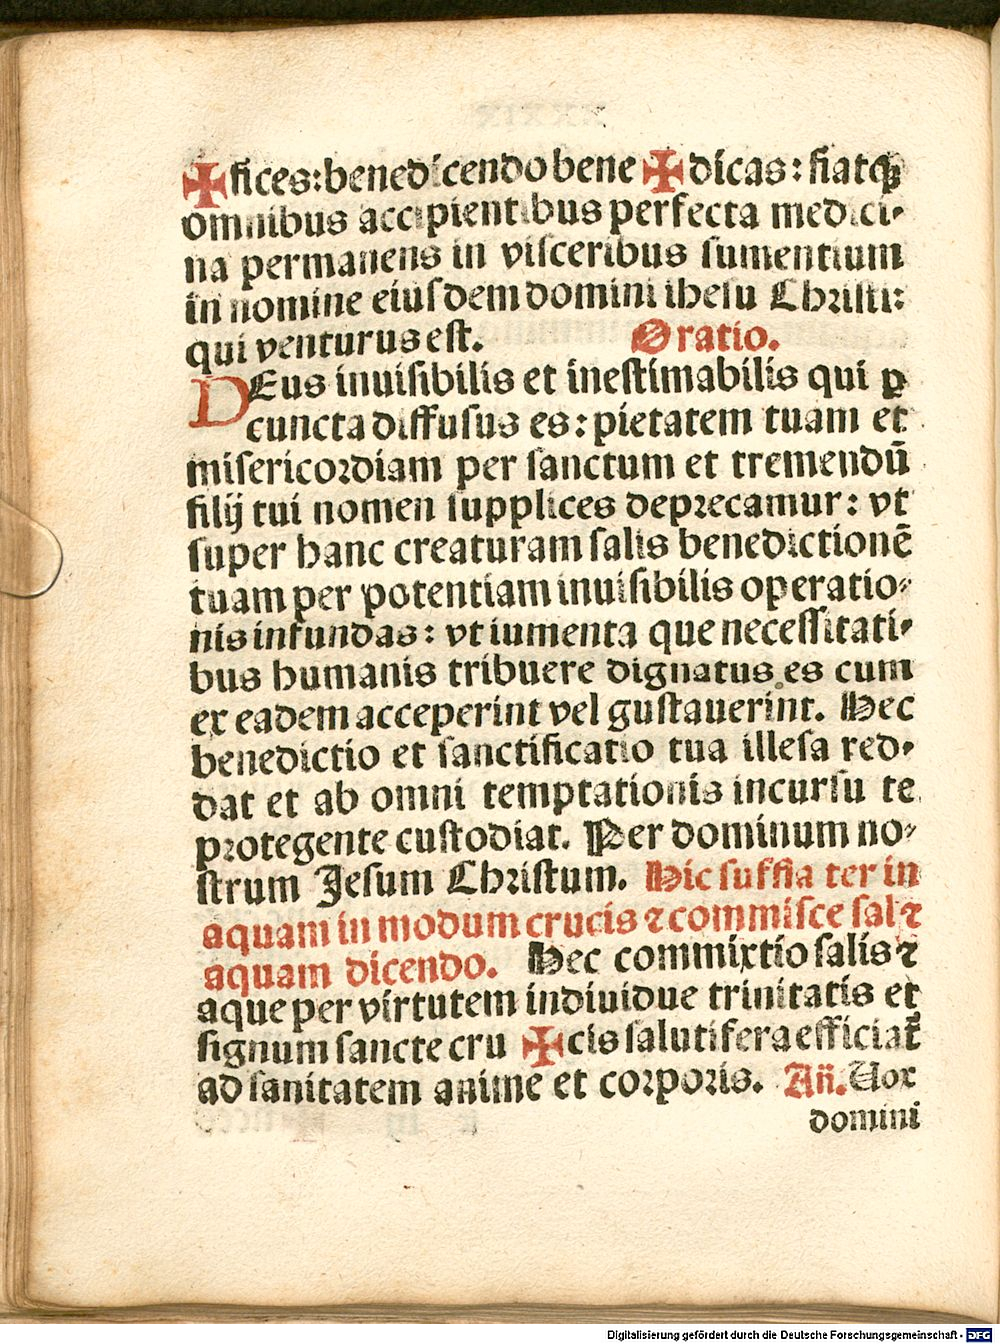 ✠ fices: benedicendo bene ✠ dicas: fiatqꝫ
omnibus accipientibus perfecta medici-
na permanens in visceribus sumentium
in nomine eiusdem domini ihesu Christi:
qui venturus est. Oratio.
DEus inuisibilis et inestimabilis qui ꝑ
cuncta diffusus es: pietatem tuam et
misericordiam per sanctum et tremendū
filij tui nomen supplices deprecamur: vt
super hanc creaturam salis benedictionē
tuam per potentiam inuisibilis operatio-
nis infundas: vt iumenta que necessitati-
bus humanis tribuere dignatus es cum
ex eadem acceperint vel gustauerint. Hec
benedictio et sanctificatio tua illesa red-
dat et ab omni temptationis incursu te
protegente custodiat. Per dominum no-
strum Jesum Christum. Hic suffla ter in
aquam in modum crucis ⁊ commisce sal ⁊
aquam dicendo. Hec commixtio salis ⁊
aque per virtutem indiuidue trinitatis et
signum sancte cru ✠ cis salutifera efficiat̉
ad sanitatem anime et corporis. Añ. Uox
domini
Digitalisierung gefördert durch die Deutsche Forschungsgemeinschaft - DFG